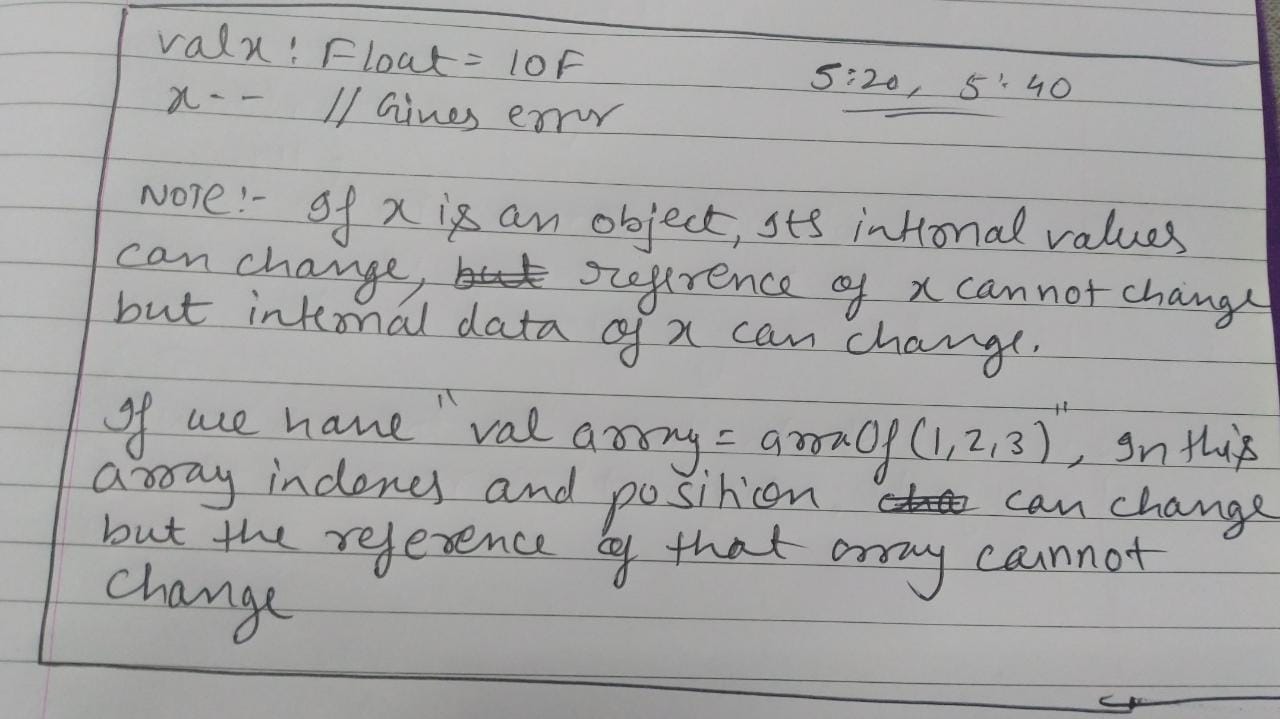 val x : Float = 10F
5:20, 5:40
x-- // Gives error
NOTE:- If x is an object, its internal values
can change, but reference of x cannot change
but internal data of x can change.
If we have "val array = arraOf(1,2,3)", In this
array indexes and position cha can change
but the reference of that array cannot
change